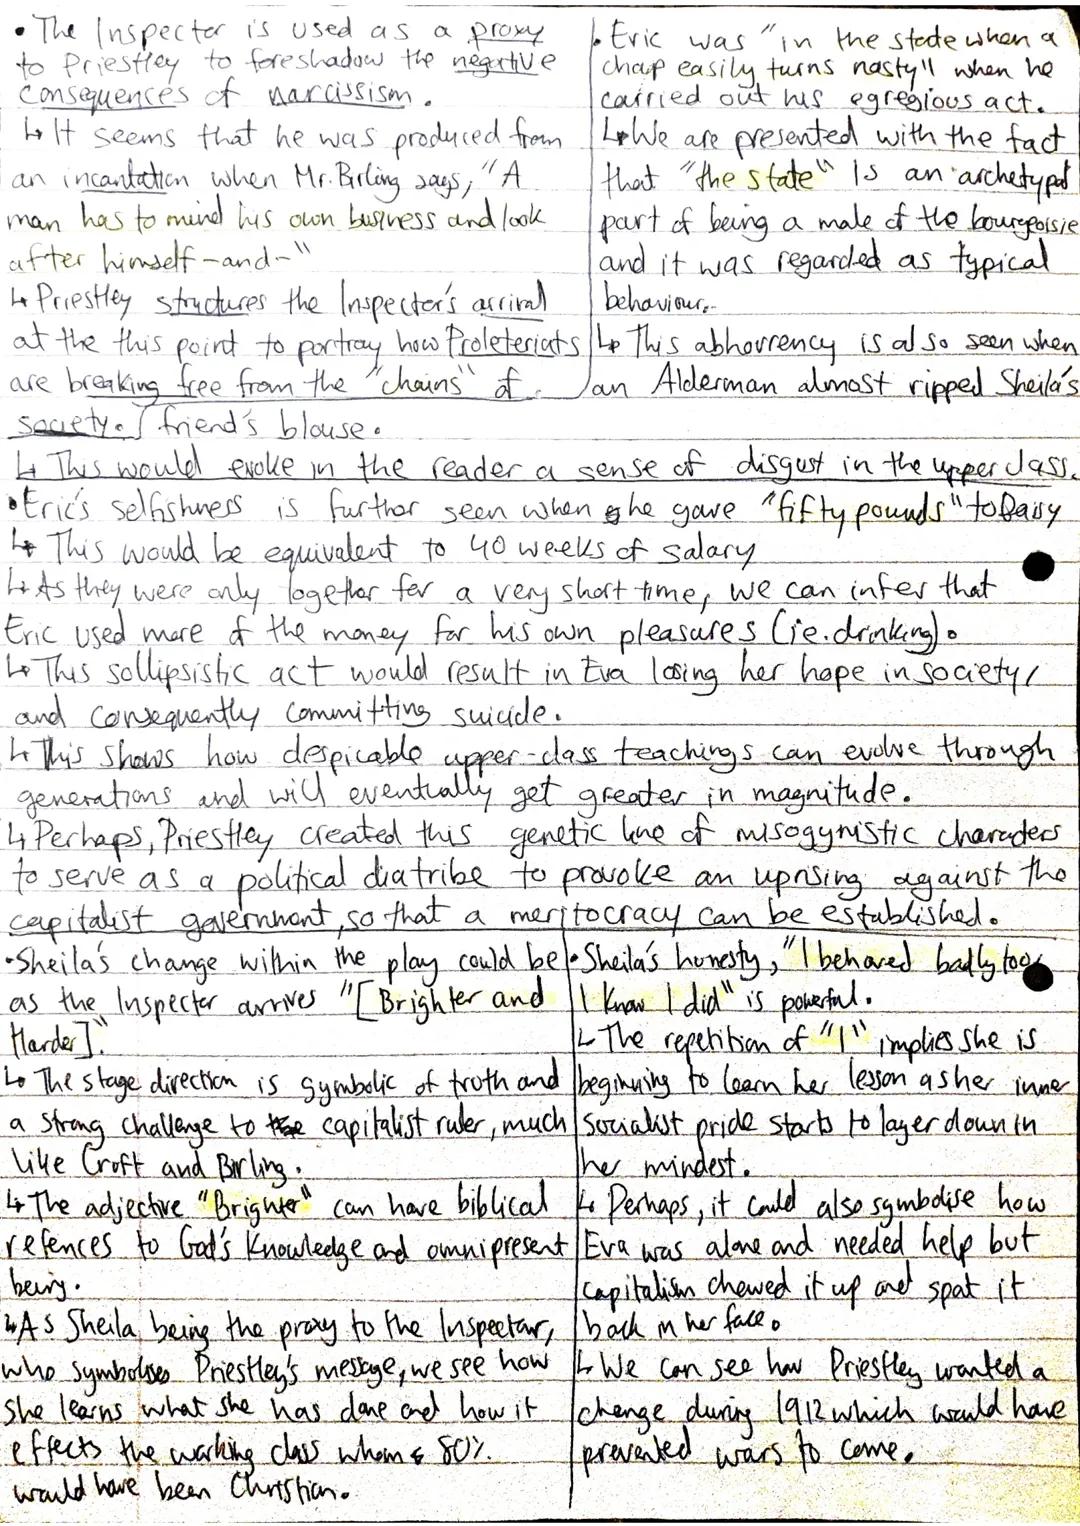 • The Inspector is used as a proxy
to Priestley to foreshadow the negative
consequences of narcissism.
↳ It seems that he was produced from
an incantation when Mr. Birling says, "A
man has to mind his own business and look
after himself -and-"
↳ Priestley structures the Inspector's arrival
at the this point to portray how Proleteriats
are breaking free from the "chains" of
society.
• Eric was "in the state when a
chap easily turns nasty" when he
carried out his egregious act.
↳ We are presented with the fact
that "the state" is an archetypal
part of being a male of the bourgeoisie
and it was regarded as typical
behaviour.
↳ This abhorrency is also seen when
an Alderman almost ripped Sheila's
friend's blouse.
↳ This would evoke in the reader a sense of disgust in the upper class.
• Eric's selfishness is further seen when he gave "fifty pounds" to Daisy
↳ This would be equivalent to 40 weeks of salary
↳ As they were only together for a very short time, we can infer that
Eric used more of the money for his own pleasures (ie. drinking).
↳ This sollipsistic act would result in Eva losing her hope in society,
and consequently committing suicide.
↳ This shows how despicable upper-class teachings can evolve through
generations and will eventually get greater in magnitude.
↳ Perhaps, Priestley created this genetic line of misogynistic characters
to serve as a political diatribe to provoke an uprising against the
capitalist government, so that a meritocracy can be established.
• Sheila's change within the play could be
as the Inspector arrives "[Brighter and
Harder]."
↳ The stage direction is symbolic of truth and
a strong challenge to capitalist ruler, much
like Croft and Birling.
↳ The adjective "Brighter" can have biblical
refences to God's knowledge and omnipresent
being.
↳ As Sheila, being the proxy to the Inspector,
who symbolises Priestley's message, we see how
she learns what she has done and how it
effects the working class whom 80%
would have been Christian.
• Sheila's honesty, "I behaved badly too
I know I did" is powerful.
↳ The repetition of "I" implies she is
beginning to learn her lesson as her inner
Socialist pride starts to layer down in
her mindest.
↳ Perhaps, it could also symbolise how
Eva was alone and needed help but
capitalism chewed it up and spat it
back in her face.
↳ We can see how Priestley wanted a
change during 1912 which would have
prevented wars to come.